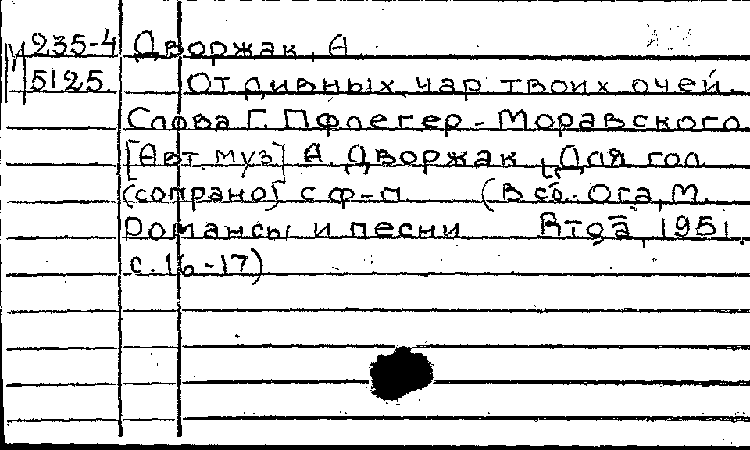 М 235-4 Дворжак, А.
5125 От дивных чар твоих очей.
Слова Г. Пфлегер-Моравского
[Авт. муз.] А. Дворжак. [Для гол.
(сопрано) с ф-п. (В сб.: Ога, М.
Романсы и песни 1951.
с. 16-17)